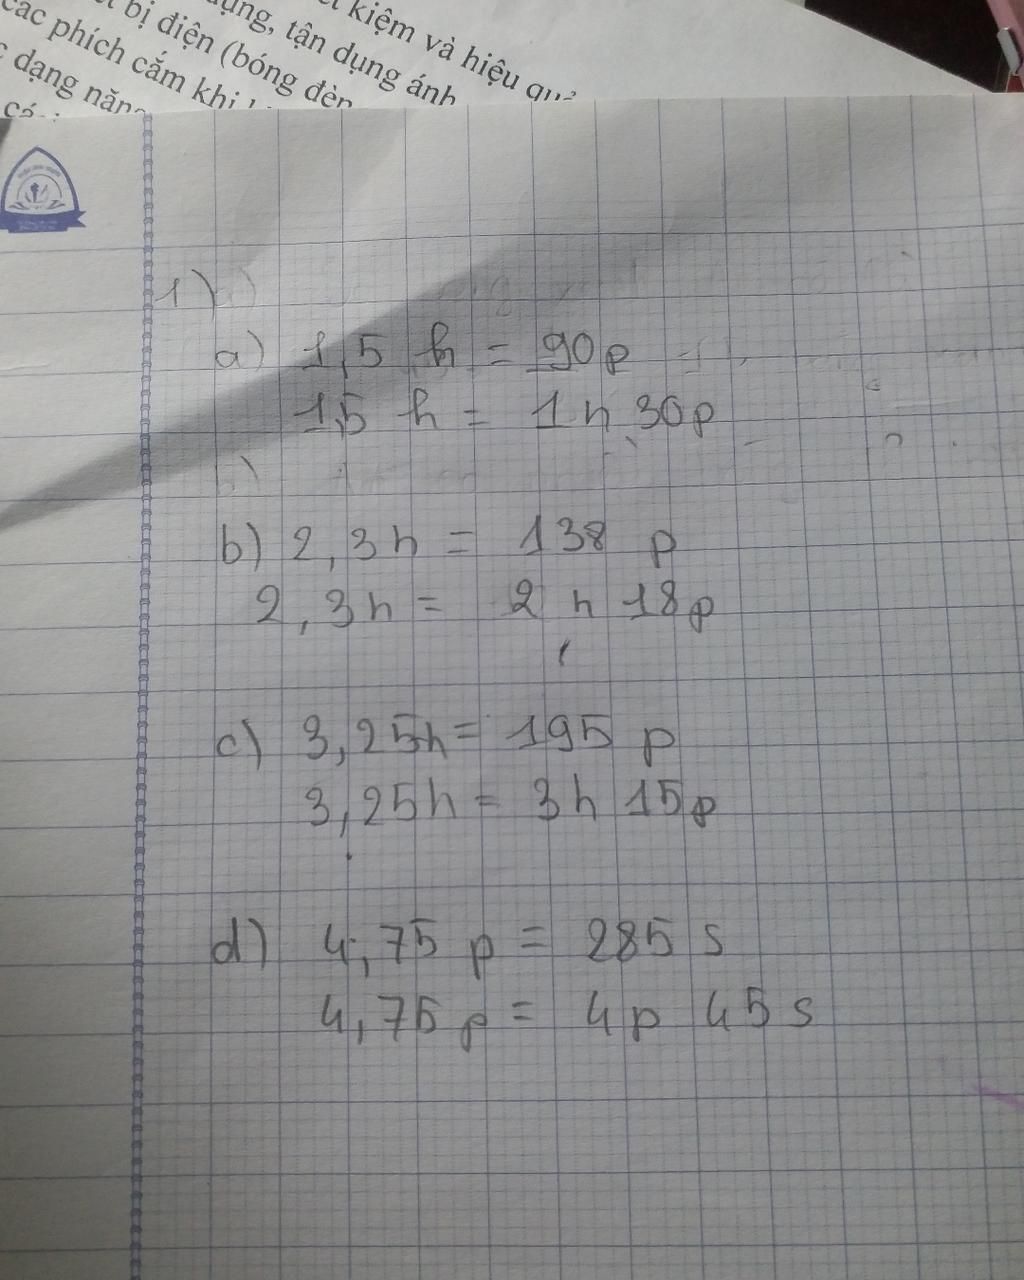 kiệm và hiệu quả
dụng, tận dụng ánh
bị điện (bóng đèn
các phích cắm khi
dạng năng
có
1)
a) 1,5 h = 90p
1,5 h = 1h 30p
b) 2,3h = 138 p
2,3h = 2 h 18p
c) 3,25h = 195 p
3,25h = 3h 15p
d) 4,75 p = 285 s
4,75 p = 4p 45 s